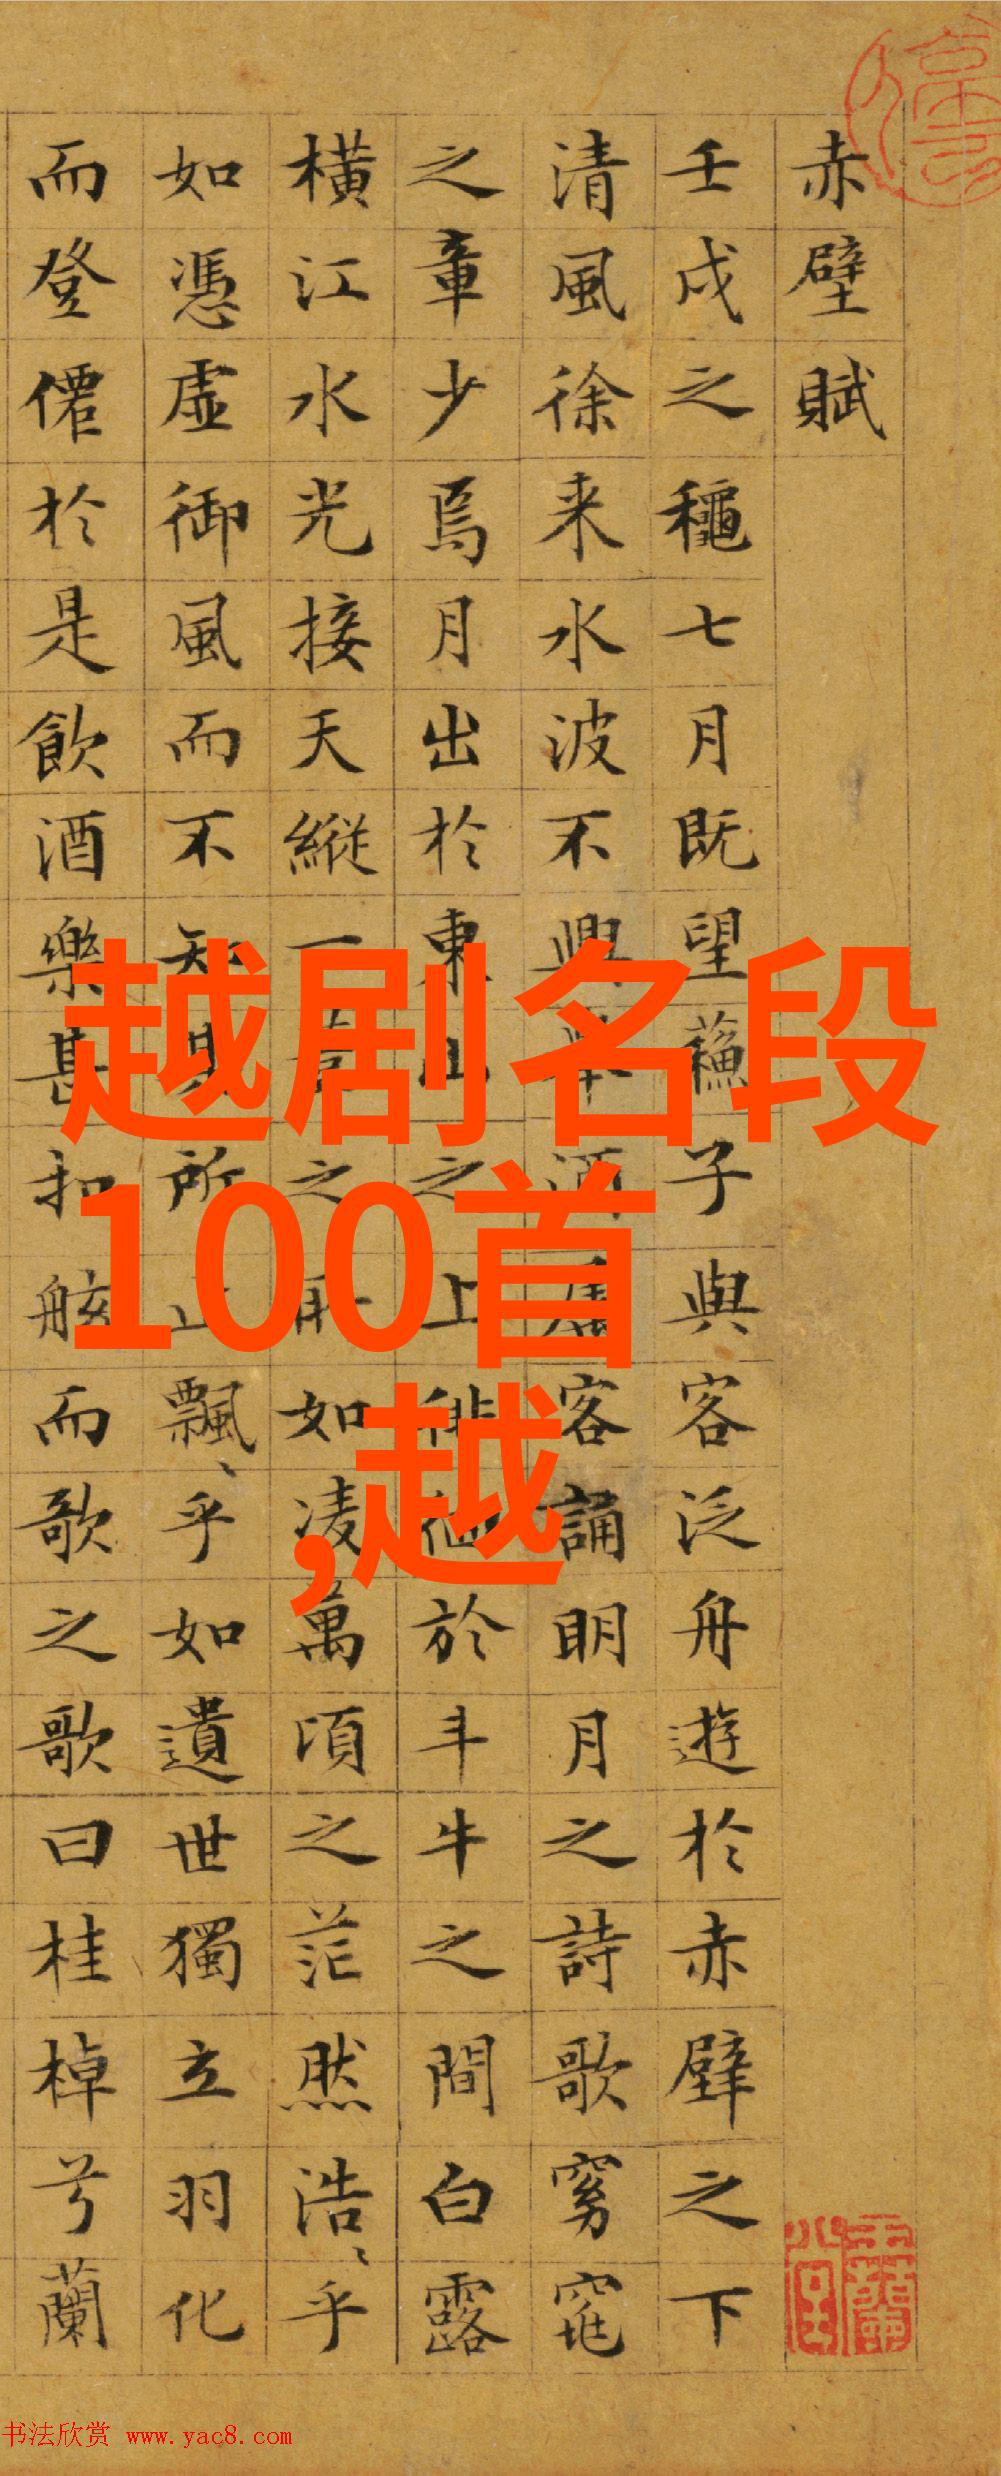 赤壁賦
壬戌之穐七月既望蘓子與客泛舟遊於赤壁之下
清風徐来水波不興舉酒屬客誦眀月之詩歌窈窕
之章少焉月出於東山之上徘徊於斗牛之間白露
横江水光接天縱一葦之所如凌萬頃之茫然浩、乎
如憑虛御風而不知其所止飄、乎如遺世獨立羽化
而登僊於是飲酒樂甚扣舷而歌之歌曰桂棹兮蘭
越剧名段
100首
,越
书法欣赏 www.yac8.com